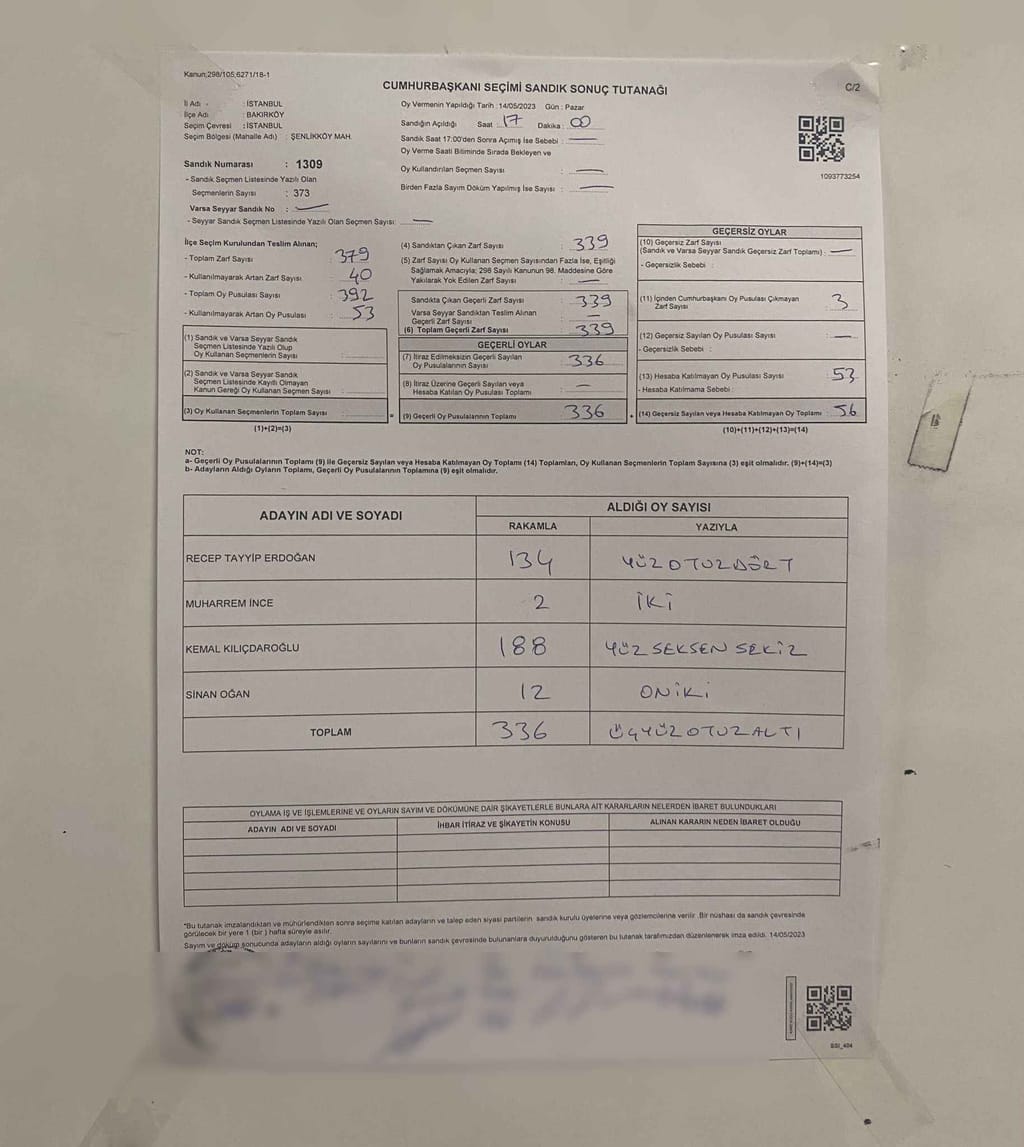 Kanun;298/105;6271/18-1
CUMHURBAŞKANI SEÇİMİ SANDIK SONUÇ TUTANAĞI
C/2
İl Adı : İSTANBUL
İlçe Adı : BAKIRKÖY
Seçim Çevresi : İSTANBUL
Seçim Bölgesi (Mahalle Adı) : ŞENLİKKÖY MAH.
Oy Vermenin Yapıldığı Tarih :14/05/2023 Gün : Pazar
Sandığın Açıldığı Saat : 17 Dakika : 00
Sandık Saat 17:00'den Sonra Açımış İse Sebebi :
Oy Verme Saati Bitiminde Sırada Bekleyen ve
Oy Kullandırılan Seçmen Sayısı :
Birden Fazla Sayım Döküm Yapılmış İse Sayısı :
1093773254
Sandık Numarası : 1309
- Sandık Seçmen Listesinde Yazılı Olan
Seçmenlerin Sayısı : 373
Varsa Seyyar Sandık No :
- Seyyar Sandık Seçmen Listesinde Yazılı Olan Seçmen Sayısı:
İlçe Seçim Kurulundan Teslim Alınan;
- Toplam Zarf Sayısı : 379
- Kullanılmayarak Artan Zarf Sayısı : 40
- Toplam Oy Pusulası Sayısı : 392
- Kullanılmayarak Artan Oy Pusulası : 53
(1) Sandık ve Varsa Seyyar Sandık
Seçmen Listesinde Yazılı Olup
Oy Kullanan Seçmenlerin Sayısı :
(2) Sandık ve Varsa Seyyar Sandık
Seçmen Listesinde Kayıtlı Olmayan
Kanun Gereği Oy Kullanan Seçmen Sayısı :
(3) Oy Kullanan Seçmenlerin Toplam Sayısı :
(1)+(2)=(3)
(4) Sandıktan Çıkan Zarf Sayısı : 339
(5) Zarf Sayısı Oy Kullanan Seçmen Sayısından Fazla İse, Eşitliği
Sağlamak Amacıyla; 298 Sayılı Kanunun 98. Maddesine Göre
Yakılarak Yok Edilen Zarf Sayısı :
Sandıkta Çıkan Geçerli Zarf Sayısı : 339
Varsa Seyyar Sandıktan Teslim Alınan
Geçerli Zarf Sayısı :
(6) Toplam Geçerli Zarf Sayısı : 339
GEÇERLİ OYLAR
(7) İtiraz Edilmeksizin Geçerli Sayılan
Oy Pusulasının Sayısı : 336
(8) İtiraz Üzerine Geçerli Sayılan veya
Hesaba Katılan Oy Pusulası Toplamı :
= (9) Geçerli Oy Pusulalarının Toplamı : 336
GEÇERSİZ OYLAR
(10) Geçersiz Zarf Sayısı
(Sandık ve Varsa Seyyar Sandık Geçersiz Zarf Toplamı) :
- Geçersizlik Sebebi :
(11) İçinden Cumhurbaşkanı Oy Pusulası Çıkmayan
Zarf Sayısı : 3
(12) Geçersiz Sayılan Oy Pusulası Sayısı :
- Geçersizlik Sebebi :
(13) Hesaba Katılmayan Oy Pusulası Sayısı : 53
- Hesaba Katılmama Sebebi :
+ (14) Geçersiz Sayılan veya Hesaba Katılmayan Oy Toplamı : 56
(10)+(11)+(12)+(13)=(14)
NOT:
a- Geçerli Oy Pusulalarının Toplamı (9) ile Geçersiz Sayılan veya Hesaba Katılmayan Oy Toplamı (14) Toplamları, Oy Kullanan Seçmenlerin Toplam Sayısına (3) eşit olmalıdır. (9)+(14)=(3)
b- Adayların Aldığı Oyların Toplamı, Geçerli Oy Pusulalarının Toplamına (9) eşit olmalıdır.
ADAYIN ADI VE SOYADI
ALDIĞI OY SAYISI
RAKAMLA YAZIYLA
RECEP TAYYİP ERDOĞAN 134 YÜZOTUZDÖRT
MUHARREM İNCE 2 İKİ
KEMAL KILIÇDAROĞLU 188 YÜZ SEKSEN SEKİZ
SİNAN OĞAN 12 ONİKİ
TOPLAM 336 ÜÇYÜZOTUZALTI
OYLAMA İŞ VE İŞLEMLERİNE VE OYLARIN SAYIM VE DÖKÜMÜNE DAİR ŞİKAYETLERLE BUNLARA AİT KARARLARIN NELERDEN İBARET BULUNDUKLARI
ADAYIN ADI VE SOYADI İHBAR İTİRAZ VE ŞİKAYETİN KONUSU ALINAN KARARIN NEDEN İBARET OLDUĞU
*Bu tutanak imzalandıktan ve mühürlendikten sonra seçime katılan adayların ve talep eden siyasi partilerin sandık kurulu üyelerine veya gözlemcilerine verilir .Bir nüshası da sandık çevresinde
görülecek bir yere 1 (bir ) hafta süreyle asılır.
Sayım ve döküm sonucunda adayların aldığı oyların sayılarını ve bunların sandık çevresinde bulunanlara duyurulduğunu gösteren bu tutanak tarafımızdan düzenlenerek imza edildi. 14/05/2023